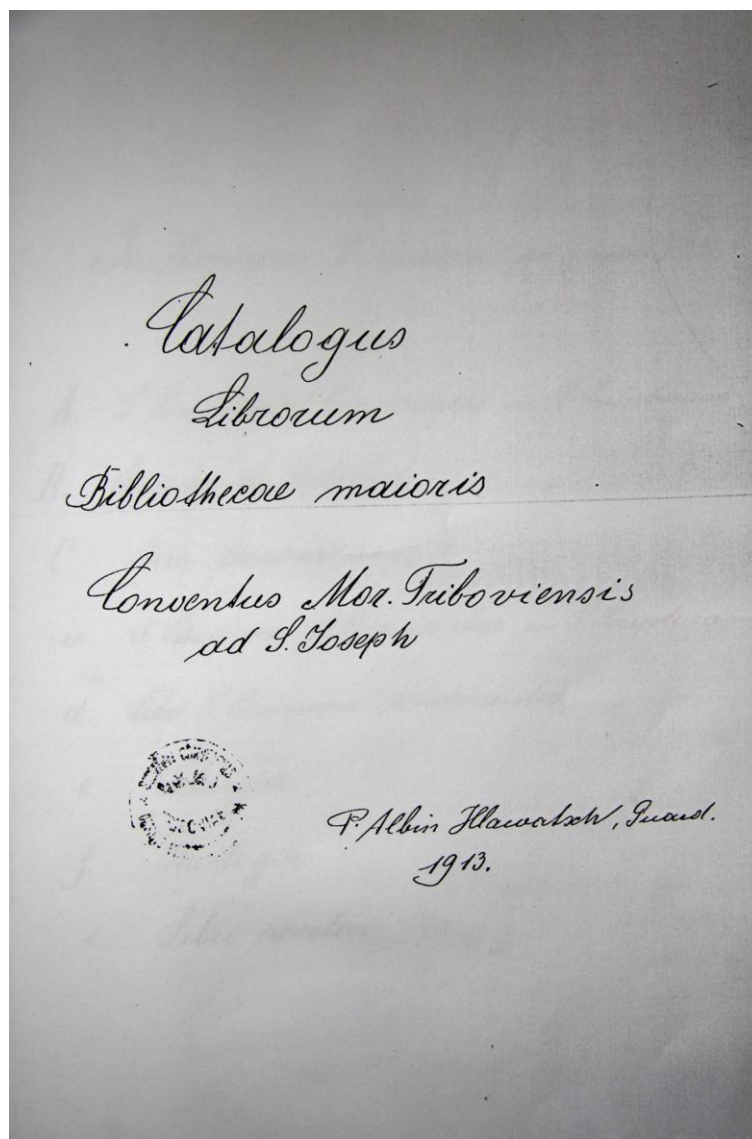 Catalogus
Librorum
Bibliothecae maioris
Conventus Mor. Triboviensis
ad S. Joseph
P. Albin Hlawatsch, Guard.
1913.